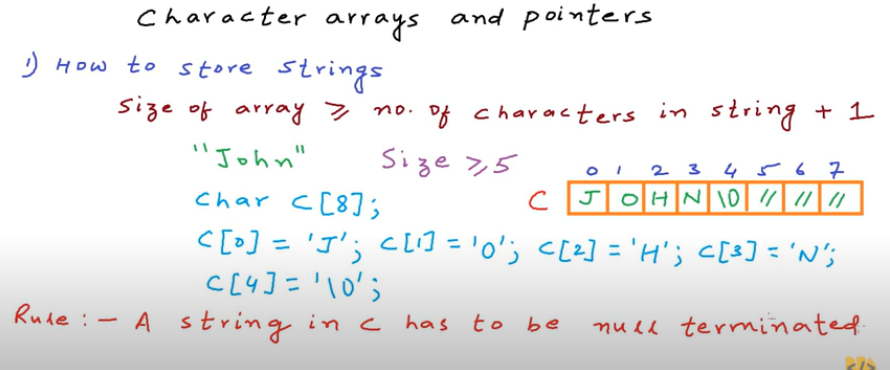 Character arrays and pointers
1) How to store strings
Size of array ≥ no. of characters in string + 1
"John" Size ≥ 5
0 1 2 3 4 5 6 7
char C[8]; C J O H N \0 // // //
C[0] = 'J'; C[1] = 'O'; C[2] = 'H'; C[3] = 'N';
C[4] = '\0';
Rule :- A string in C has to be null terminated
</>